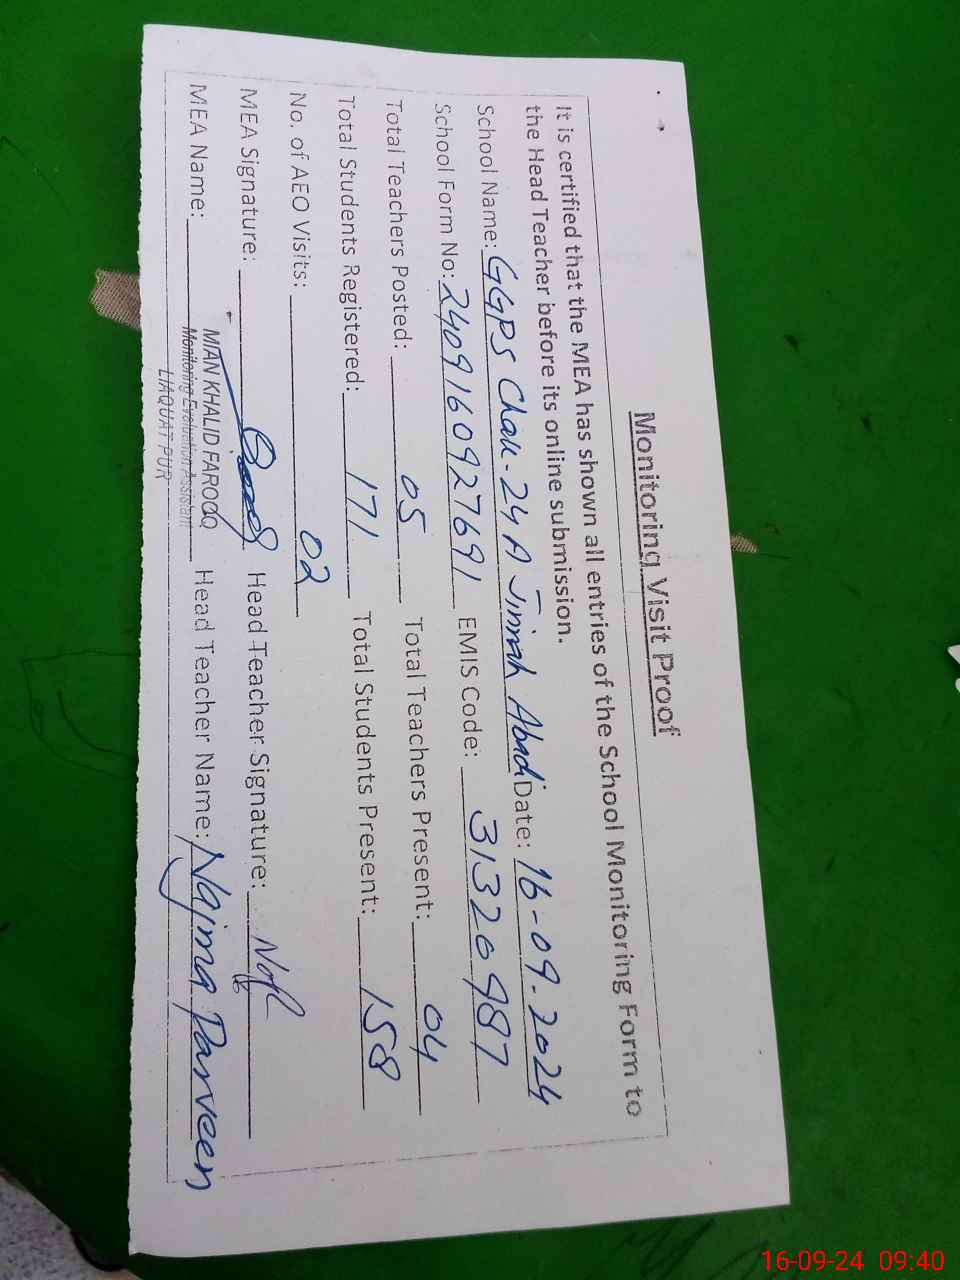 Monitoring Visit Proof
It is certified that the MEA has shown all entries of the School Monitoring Form to
the Head Teacher before its online submission.
School Name: GGPS Chak-24 A Jinnah Abadi Date: 16-09-2024
School Form No: 2409160927691 EMIS Code: 31320987
Total Teachers Posted: 05 Total Teachers Present: 04
Total Students Registered: 171 Total Students Present: 158
No. of AEO Visits: 02
MEA Signature: Head Teacher Signature:
MEA Name: MIAN KHALID FAROOQ Head Teacher Name: Najma Parveen
Monitoring Evaluation Assistant
LIAQUAT PUR
16-09-24 09:40